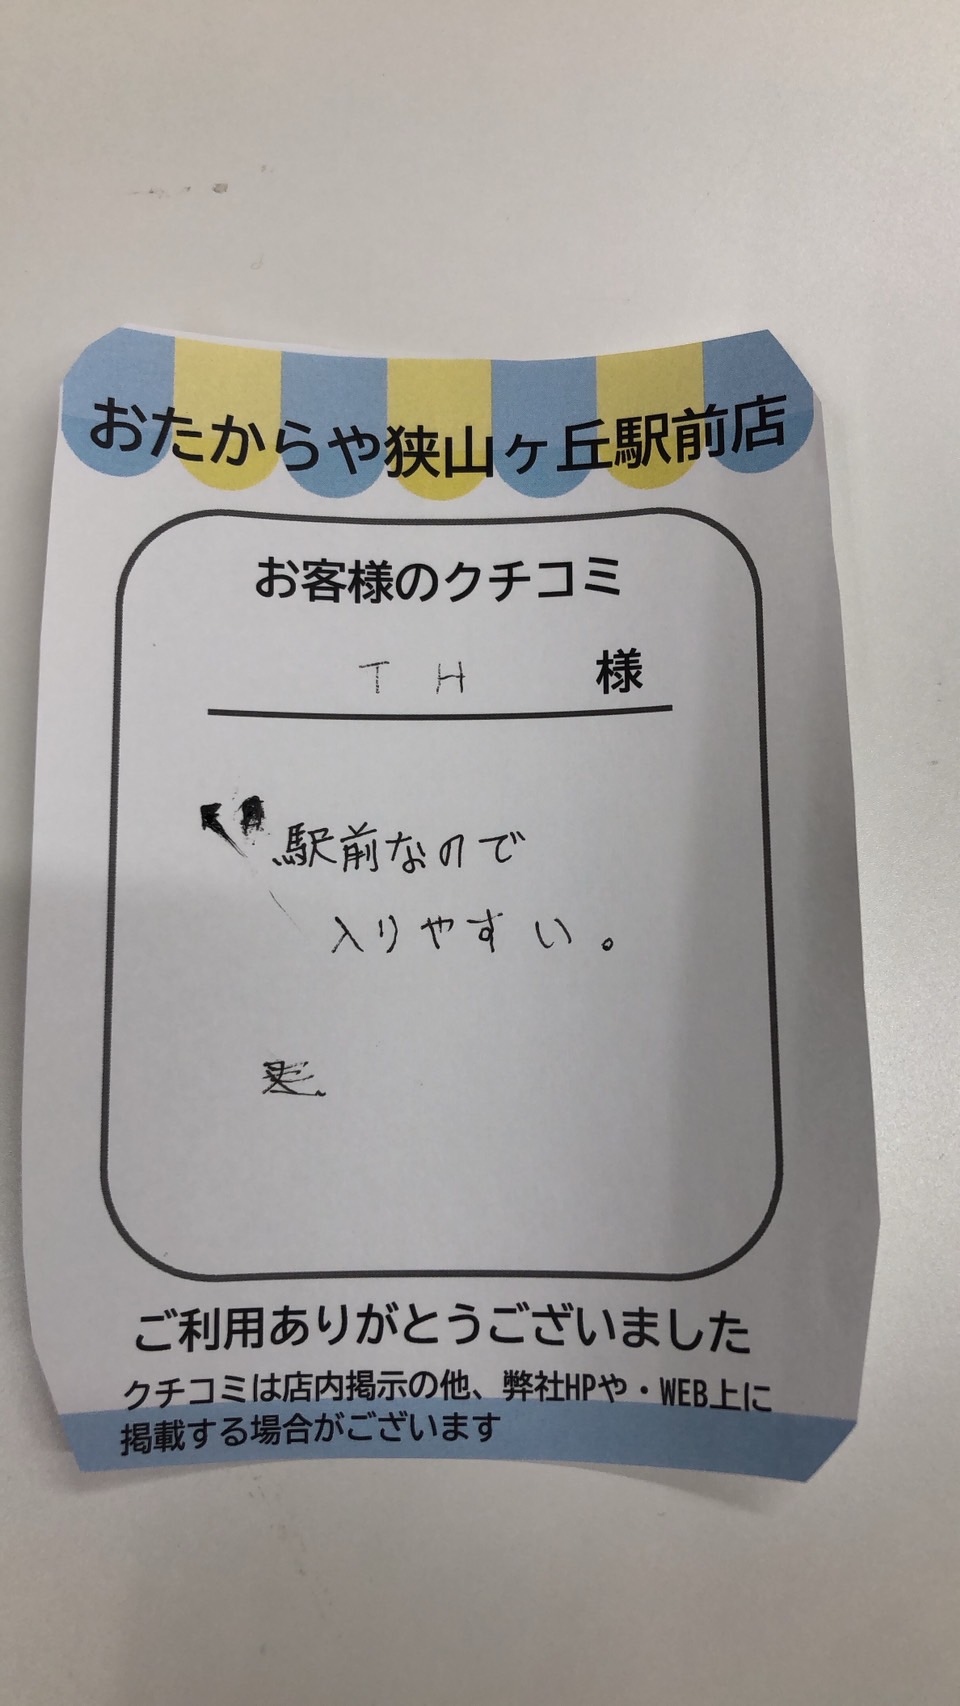 おたからや狭山ヶ丘駅前店
お客様のクチコミ
T H 様
駅前なので
入りやすい。
ご利用ありがとうございました
クチコミは店内掲示の他、弊社HPや・WEB上に
掲載する場合がございます